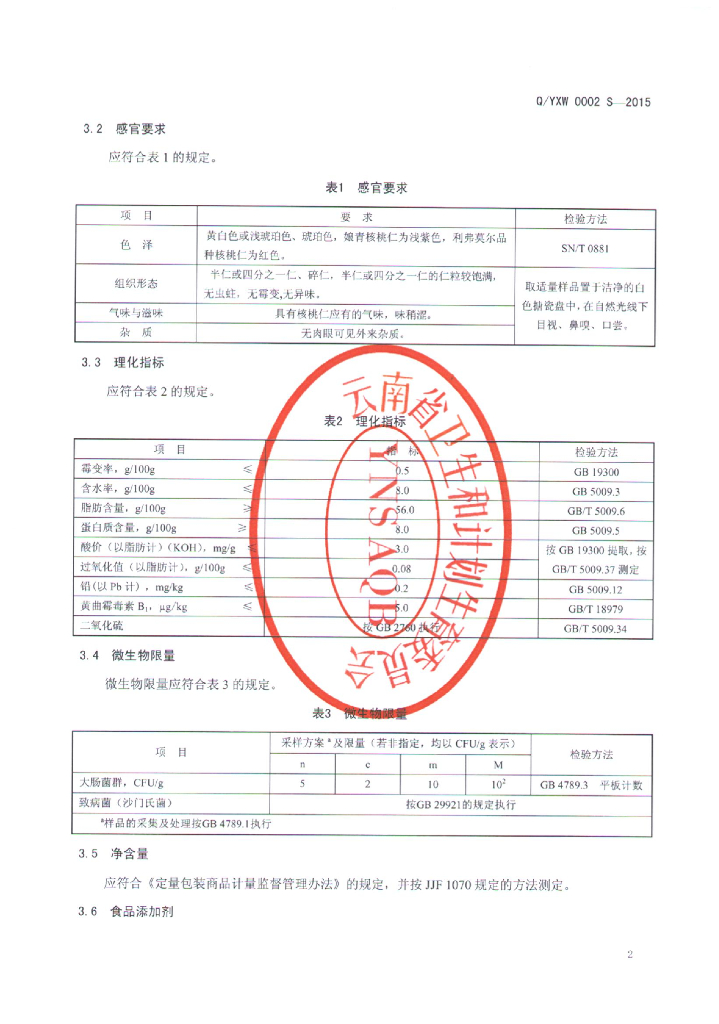 Q/YXW 0002 S—2015
3.2 感官要求
应符合表 1 的规定。
表1 感官要求
项 目 要 求 检验方法
色 泽 黄白色或浅琥珀色、琥珀色，娘青核桃仁为浅紫色，利弗莫尔品 SN/T 0881
种核桃仁为红色。
组织形态 半仁或四分之一仁、碎仁，半仁或四分之一仁的仁粒较饱满， 取适量样品置于洁净的白
无虫蛀，无霉变,无异味。 色搪瓷盘中，在自然光线下
气味与滋味 具有核桃仁应有的气味，味稍涩。 目视、鼻嗅、口尝。
杂 质 无肉眼可见外来杂质。
3.3 理化指标
应符合表 2 的规定。
表2 理化指标
项 目 指 标 检验方法
霉变率，g/100g ≤ 0.5 GB 19300
含水率，g/100g ≤ 8.0 GB 5009.3
脂肪含量，g/100g ≥ 56.0 GB/T 5009.6
蛋白质含量，g/100g ≥ 8.0 GB 5009.5
酸价（以脂肪计）（KOH），mg/g ≤ 3.0 按 GB 19300 提取，按
过氧化值（以脂肪计），g/100g ≤ 0.08 GB/T 5009.37 测定
铅(以 Pb 计），mg/kg ≤ 0.2 GB 5009.12
黄曲霉毒素 B₁，μg/kg ≤ 5.0 GB/T 18979
二氧化硫 按 GB 2760 执行 GB/T 5009.34
云南省卫生和计划生育委员会
YNSAQB
3.4 微生物限量
微生物限量应符合表 3 的规定。
表3 微生物限量
项 目 采样方案 ª 及限量（若非指定，均以 CFU/g 表示） 检验方法
n c m M
大肠菌群，CFU/g 5 2 10 10² GB 4789.3 平板计数
致病菌（沙门氏菌） 按GB 29921的规定执行
ª样品的采集及处理按GB 4789.1执行
3.5 净含量
应符合《定量包装商品计量监督管理办法》的规定，并按 JJF 1070 规定的方法测定。
3.6 食品添加剂
2